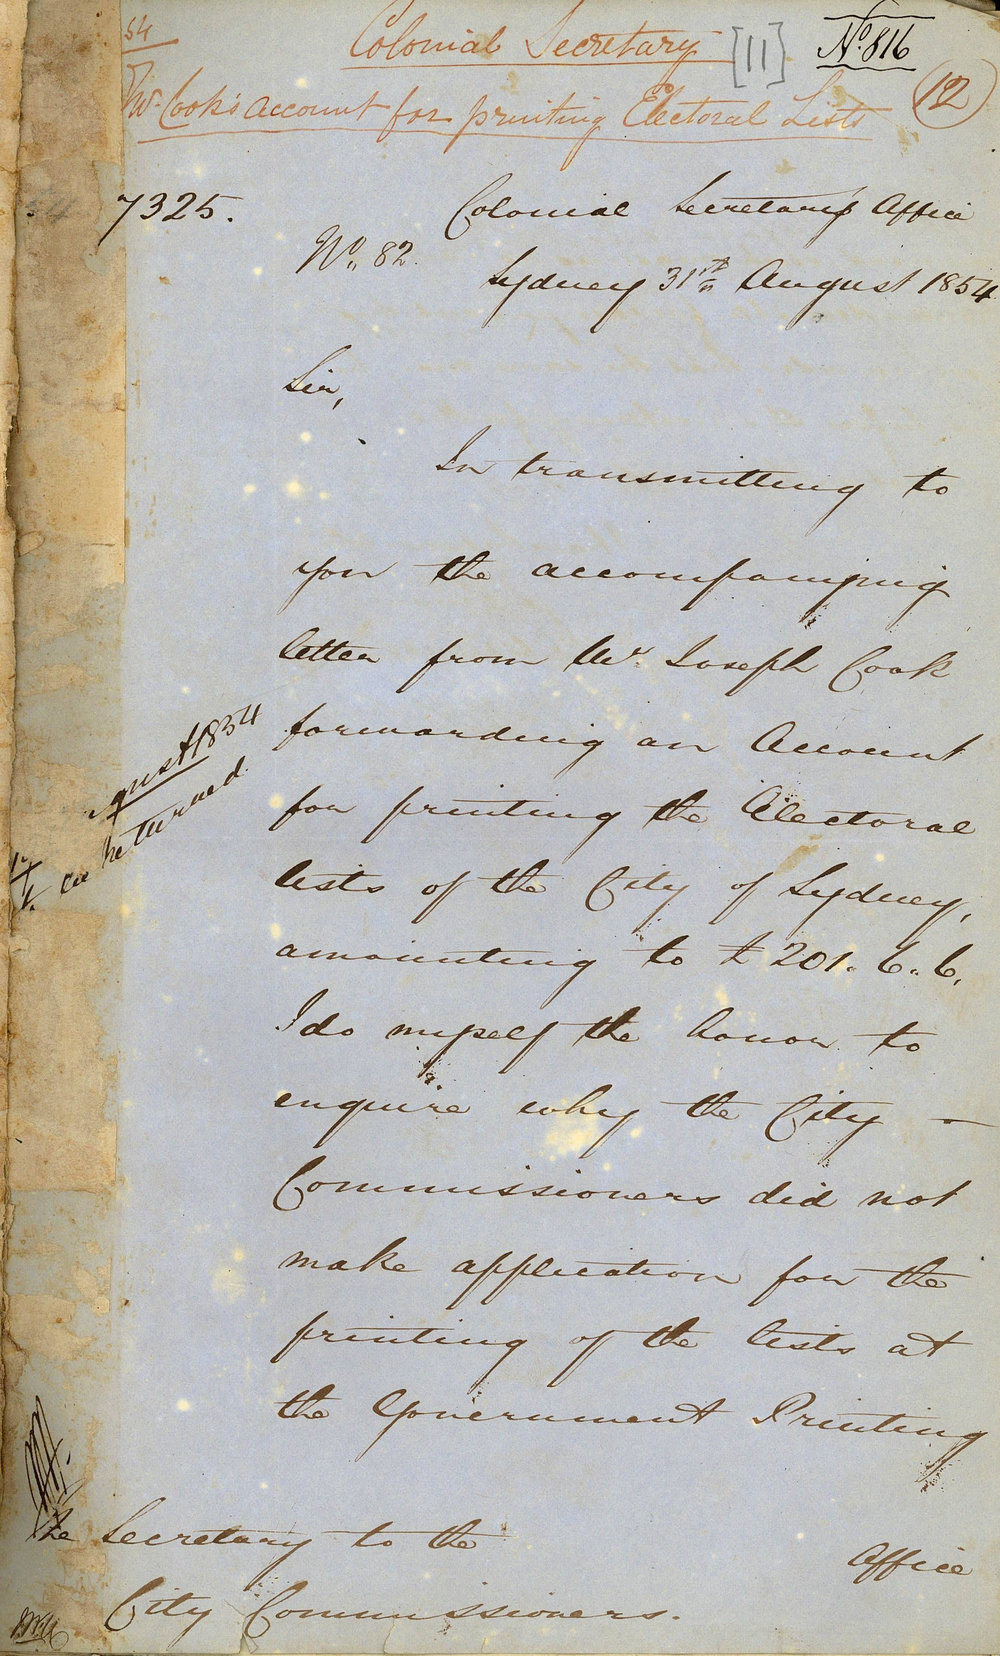 54
Colonial Secretary [11] No. 816
Mr. Cook's Account for printing Electoral Lists (12)
7325.
Colonial Secretary's Office
No. 82.
Sydney 31st August 1854
Sir,
In transmitting to
you the accompanying
letter from Mr. Joseph Cook
forwarding an Account
for printing the Electoral
lists of the City of Sydney,
amounting to £201. 6. 6.
I do myself the honor to
enquire why the City –
Commissioners did not
make application for the
printing of the lists at
the Government Printing
Office
gust 1854
returned
The Secretary to the
City Commissioners.